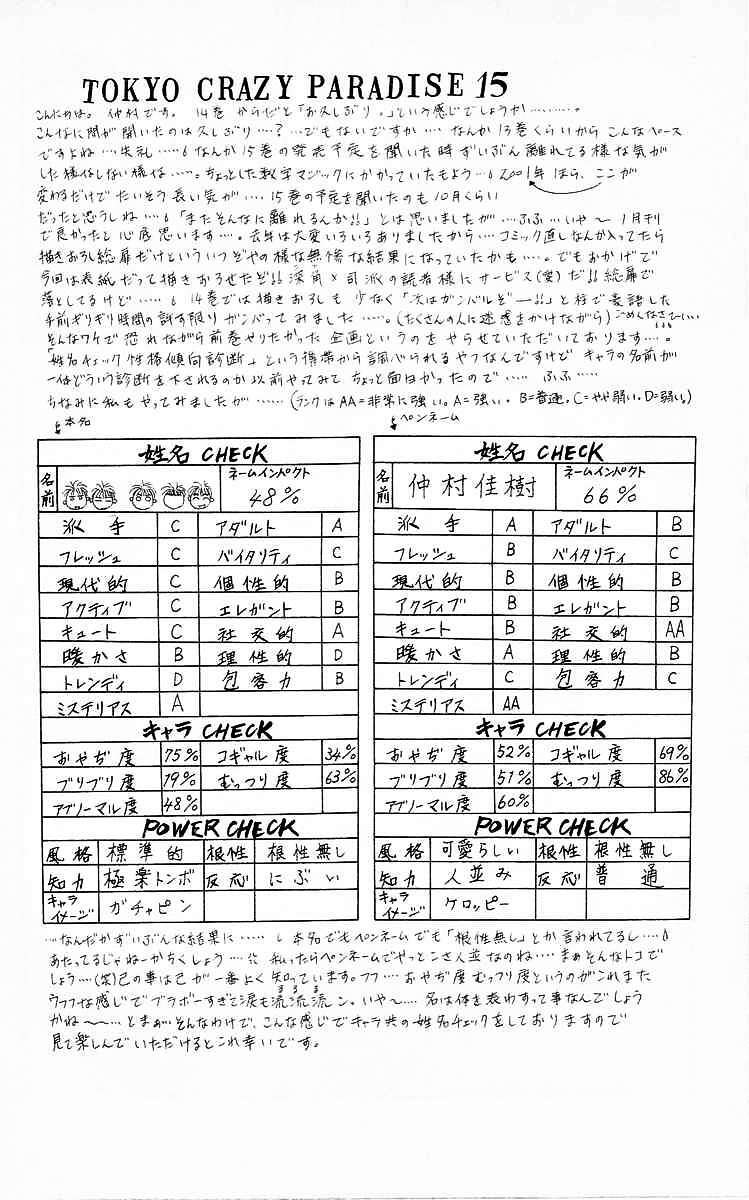 TOKYO CRAZY PARADISE 15
こんにちは。仲村です。14巻からだと「お久しぶり。」という感じでしょうか………。
こんなに間が開いたのは久しぶり…?…でもないですか…なんか13巻くらいからこんなペース
ですよね…失礼……なんか15巻の発売予定を聞いた時ずいぶん離れてる様な気が
した様なしない様な……。ちょっとした数字マジックにかかっていたもよう…2001年ほら、ここが
変わるだけでたいそう長い気が…。15巻の予定を聞いたのも10月くらい
だったと思うしね…「またそんなに離れるんか!!」とは思いましたが…ふふ…いや〜1月刊
で良かったと心底思います…。去年は大変いろいろありましたから…コミック直しなんか入ってたら
描きおろし総扉だけといういつぞやの様な無惨な結果になっていたかも…。でもおかげで
今回は表紙だって描きおろせたぞ!!深角×司派の読者様にサービス(愛)だ!!総扉で
落としてるけど……14巻では描きおろしも少なく「次はガンバルぞー!!」と柱で豪語した
手前ギリギリ時間の許す限りガンバってみました……。(たくさんの人に迷惑をかけながら)ごめんなさーいい
そんなワケで恐れながら前巻やりたかった企画というのをやらせていただいております…。
「姓名チェック性格傾向診断」という得ホから調べられるヤツなんですけどキャラの名前が
一体どういう診断を下されるのか以前やってみてちょっと面白かったので……ふふ……
ちなみに私もやってみましたが……(ランクはAA=非常に強い。A=強い。B=普通。C=やや弱い。D=弱い。)
本名
ペンネーム
姓名 CHECK
名前
ネームインパクト
48%
派手 C アダルト A
フレッシュ C バイタリティ C
現代的 C 個性的 B
アクティブ C エレガント B
キュート C 社交的 A
暖かさ B 理性的 D
トレンディ D 包容力 B
ミステリアス A
キャラ CHECK
おやぢ度 75% コギャル度 34%
ブリブリ度 79% むっつり度 63%
アブノーマル度 48%
POWER CHECK
風格 標準的 根性 根性無し
知力 極楽トンボ 反応 にぶい
キャライメージ ガチャピン
姓名 CHECK
名前 仲村佳樹
ネームインパクト
66%
派手 A アダルト B
フレッシュ B バイタリティ C
現代的 B 個性的 B
アクティブ B エレガント B
キュート B 社交的 AA
暖かさ A 理性的 B
トレンディ C 包容力 C
ミステリアス AA
キャラ CHECK
おやぢ度 52% コギャル度 69%
ブリブリ度 51% むっつり度 86%
アブノーマル度 60%
POWER CHECK
風格 可愛らしい 根性 根性無し
知力 人並み 反応 普通
キャライメージ ケロッピー
…なんだかずいぶんな結果に……本名でもペンネームでも「根性無し」とか言われてるし…
あたってるじゃねーかちくしょう…私ったらペンネームでやっとこさ人並なのね…まぁそんなトコで
しょう…(笑)己の事は己が一番よく知っています。フフ…おやぢ度むっつり度というのがこれまた
ウフフな感じでブラボーすぎて涙も流流流ン。いや〜…名は体を表わすって事なんでしょう
かね〜〜…とまぁ…そんなわけで、こんな感じでキャラ共の姓名チェックをしておりますので
見て楽しんでいただけるとこれ幸いです。